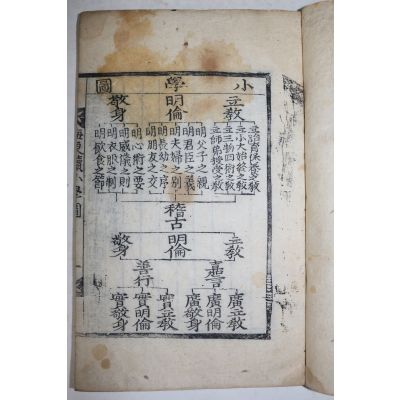 小學圖
立教
明倫
敬身
立胎育保養之教
立小大始終之教
立三物四術之教
立師弟授受之教
明父子之親
明君臣之義
明夫婦之別
明長幼之序
明朋友之交
明心術之要
明威儀之則
明衣服之制
明飲食之節
稽古
立教
明倫
敬身
嘉言
善行
廣立教
廣明倫
廣敬身
實立教
實明倫
實敬身
海東續小學圖